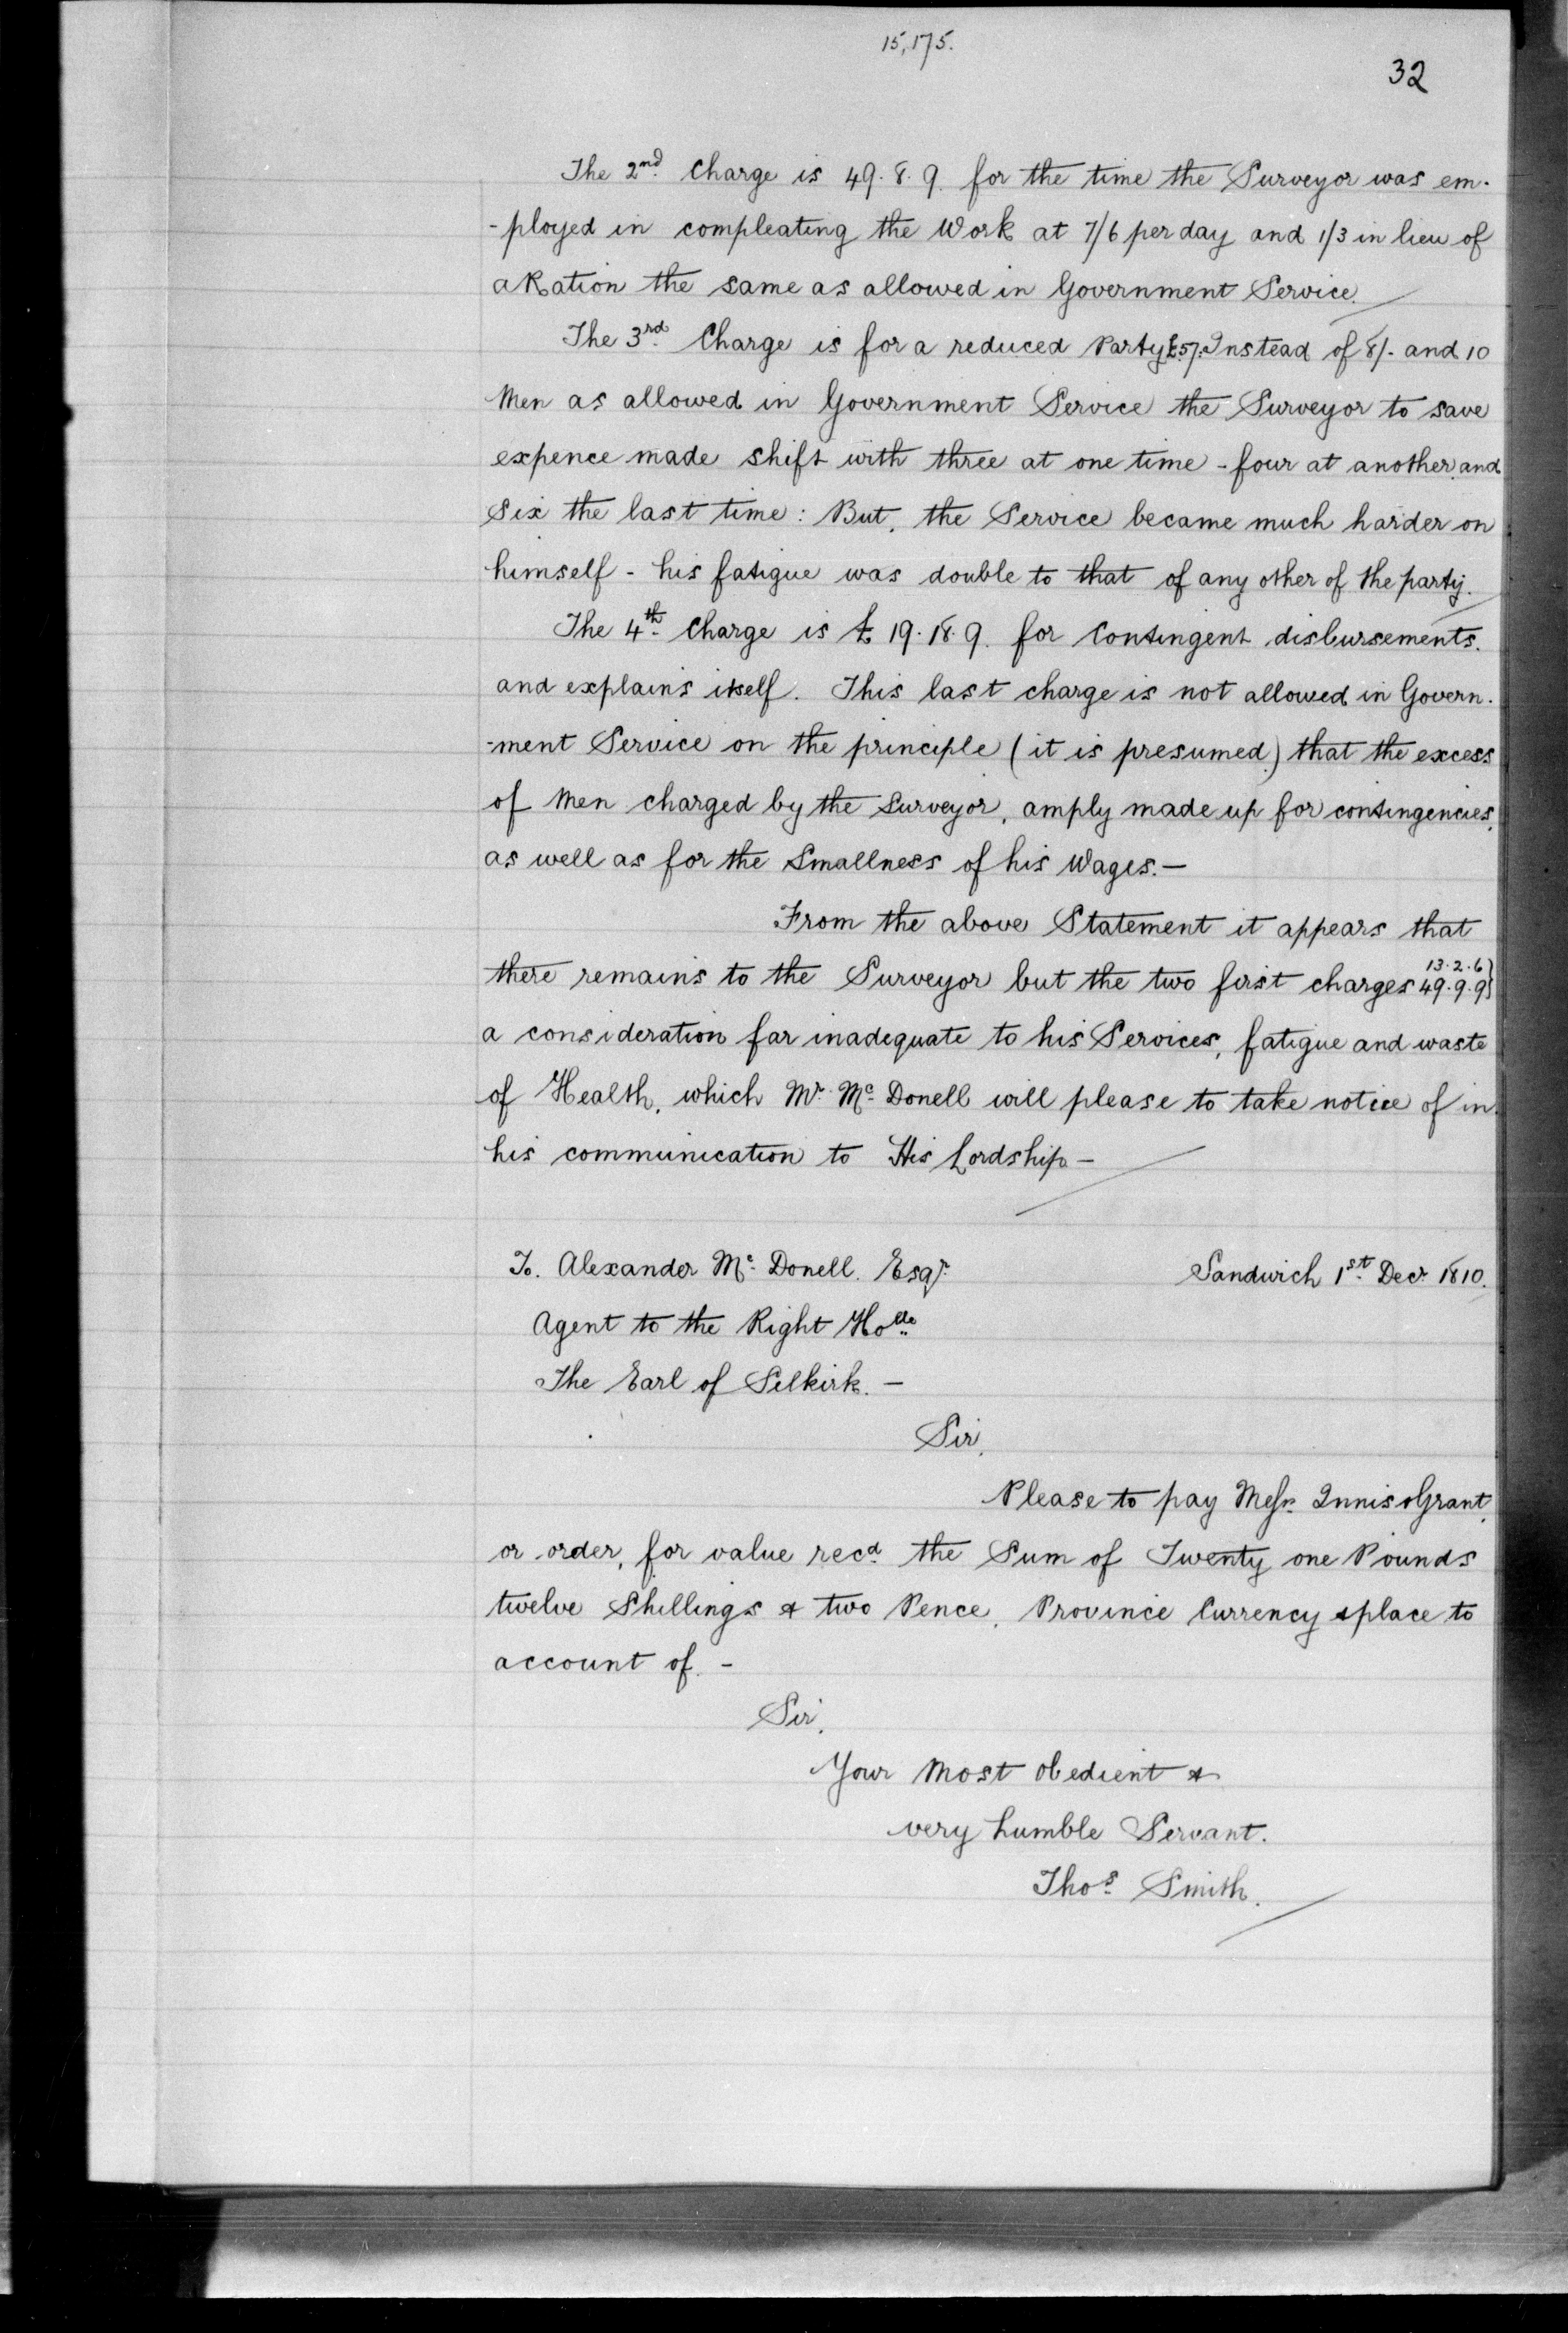 15,175.
32
The 2nd Charge is 49. 8. 9. for the time the Surveyor was em-
-ployed in compleating the Work at 7/6 per day and 1/3 in lieu of
a Ration the same as allowed in Government Service.
The 3rd Charge is for a reduced Party £57. Instead of 8/- and 10
Men as allowed in Government Service the Surveyor to save
expence made shift with three at one time - four at another and
Six the last time: But, the Service became much harder on
himself - his fatigue was double to that of any other of the party.
The 4th Charge is £ 19. 18. 9. for Contingent disbursements.
and explains itself. This last charge is not allowed in Govern-
-ment Service on the principle (it is presumed) that the excess
of Men charged by the Surveyor, amply made up for contingencies,
as well as for the Smallness of his Wages. —
From the above Statement it appears that
there remains to the Surveyor but the two first charges 13. 2. 6 } 49. 9. 9 }
a consideration far inadequate to his Services, fatigue and waste
of Health, which Mr. Mc Donell will please to take notice of in
his communication to His Lordship —
To. Alexander Mc Donell. Esqr. Sandwich 1st Decr 1810.
Agent to the Right Hoble
The Earl of Selkirk. —
Sir,
Please to pay Messrs Innis & Grant,
or order, for value recd the Sum of Twenty one Pounds
twelve Shillings & two Pence, Province Currency & place to
account of. -
Sir,
Your Most Obedient &
very humble Servant.
Thos Smith.